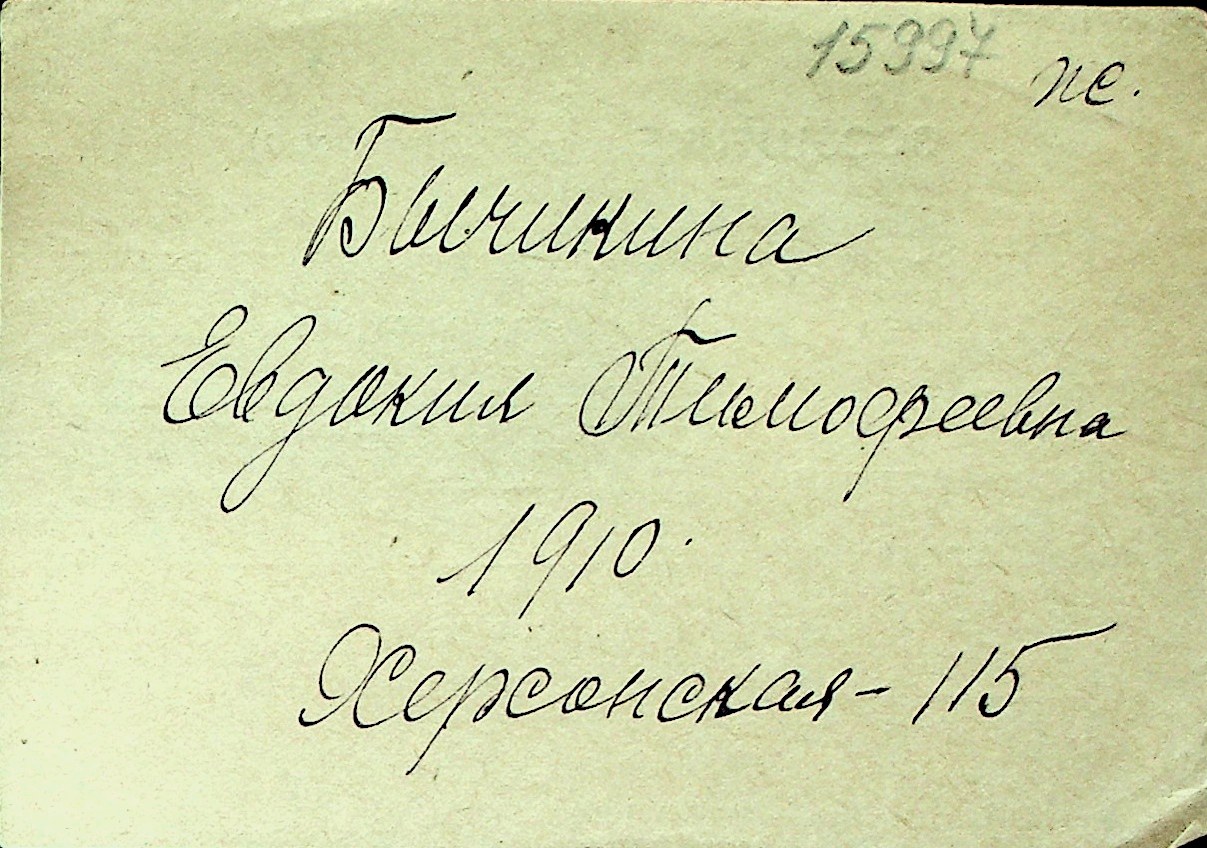 15997 пс.
Бычикина
Евдокия Тимофеевна
1910.
Херсонская - 115